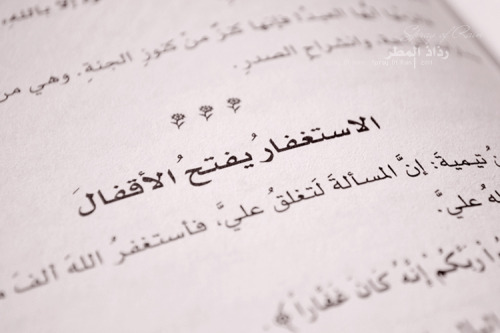 إلا بالله،
أيها العبدُ! فإنها كنزٌ من كنوزِ الجنةِ. وهي من
وانشراحِ الصدرِ.
Spray of Rain
رذاذ المطر
الاستغفارُ يفتحُ الأقفالَ
تيميةَ: إنَّ المسألةَ لَتغلقُ عليَّ، فأستغفرُ اللهَ ألفَ
عليَّ.
رَبَّكُمْ إِنَّهُ كَانَ غَفَّاراً ﴾